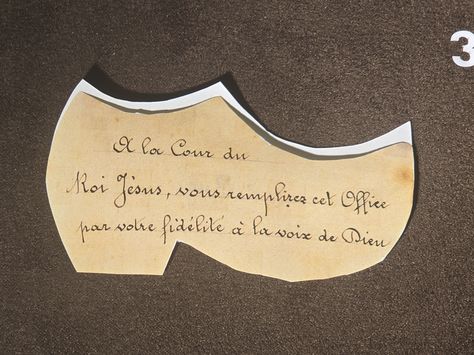 A la Cour du
Roi Jésus, vous remplirez cet Office
par votre fidélité à la voix de Dieu
3